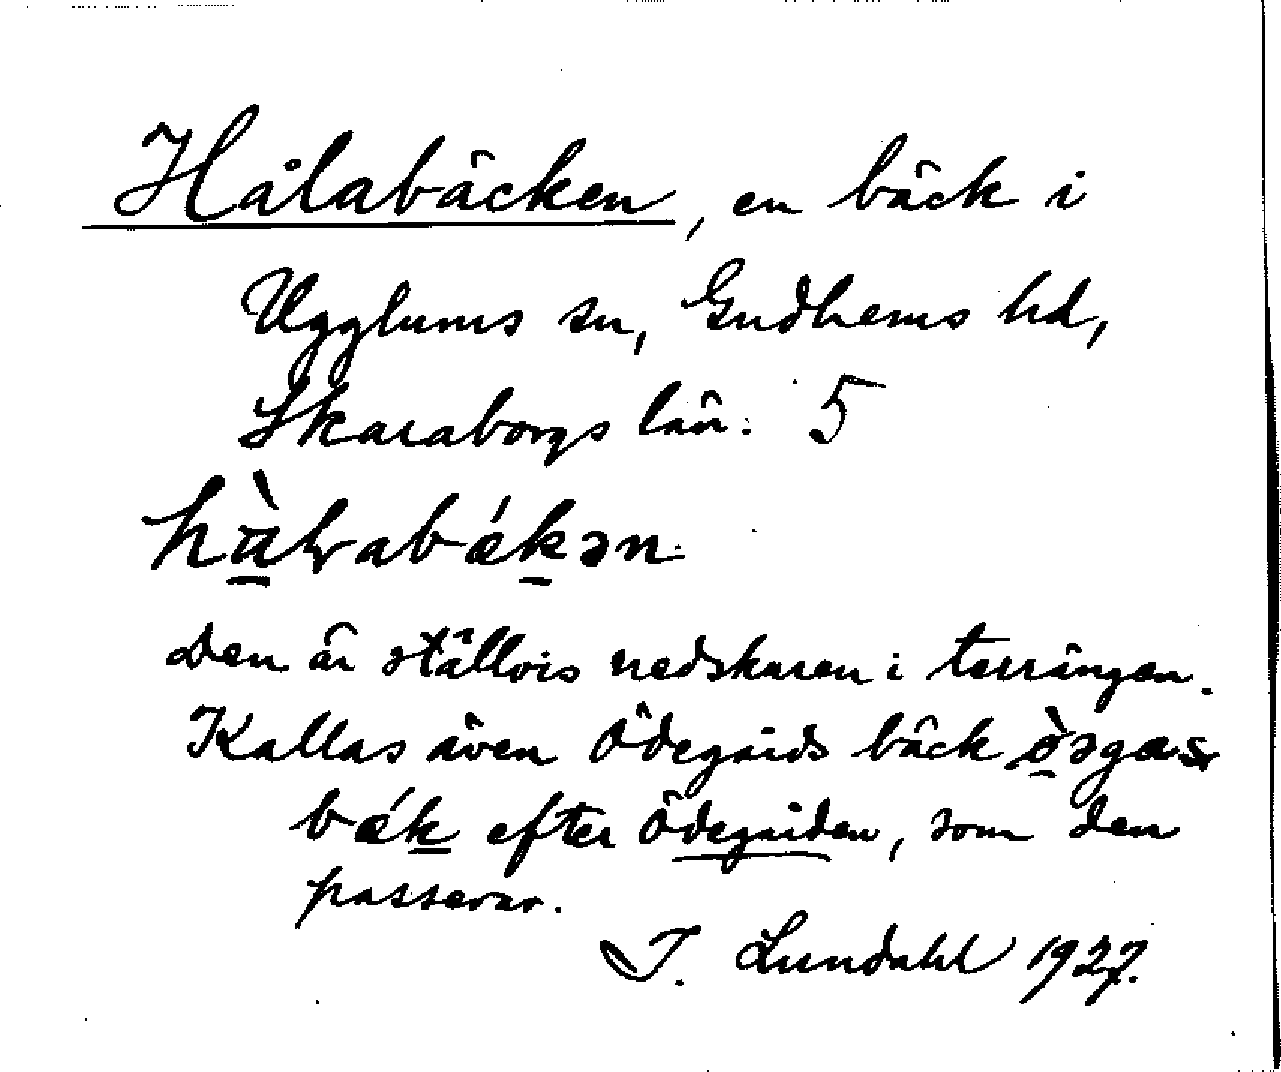 Hålabäcken, en bäck i
Ugglums sn, Gudhems hd,
Skaraborgs län. 5
Den är ställvis nedskuren i terrängen.
Kallas även Ödegärds bäck
efter Ödegärden, som den
passerar.
T. Lundahl 1927.